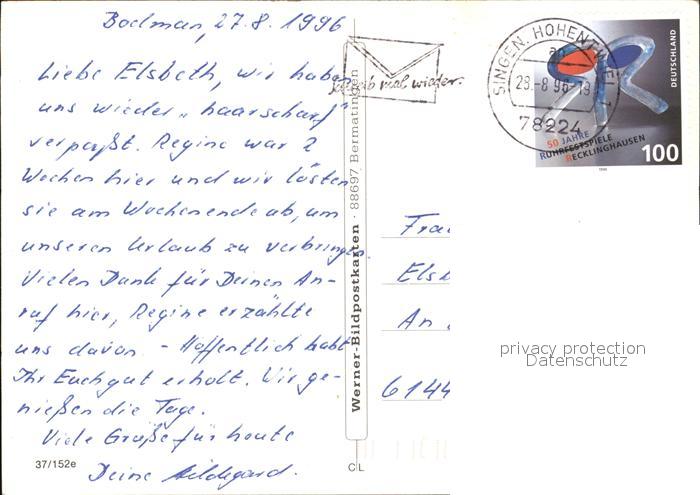 Bodman, 27.8.1996
Liebe Elsbeth, wir haben
uns wieder „haarscharf"
verpaßt. Regine war 2
Wochen hier und wir lösten
sie am Wochenende ab, um
unseren Urlaub zu verbringen.
Vielen Dank für Deinen An-
ruf hier, Regine erzählte
uns davon. - Hoffentlich habt
Ihr Euch gut erholt. Wir ge-
nießen die Tage.
Viele Grüße für heute
Deine Hildegard.
37/152e
Werner-Bildpostkarten · 88697 Bermatingen
CL
Schreib mal wieder.
SINGEN, HOHENTWIEL 1
78224
DEUTSCHLAND
50 JAHRE
RUHRFESTSPIELE
RECKLINGHAUSEN
100
1996
Frau
Els
An
6144
privacy protection
Datenschutz